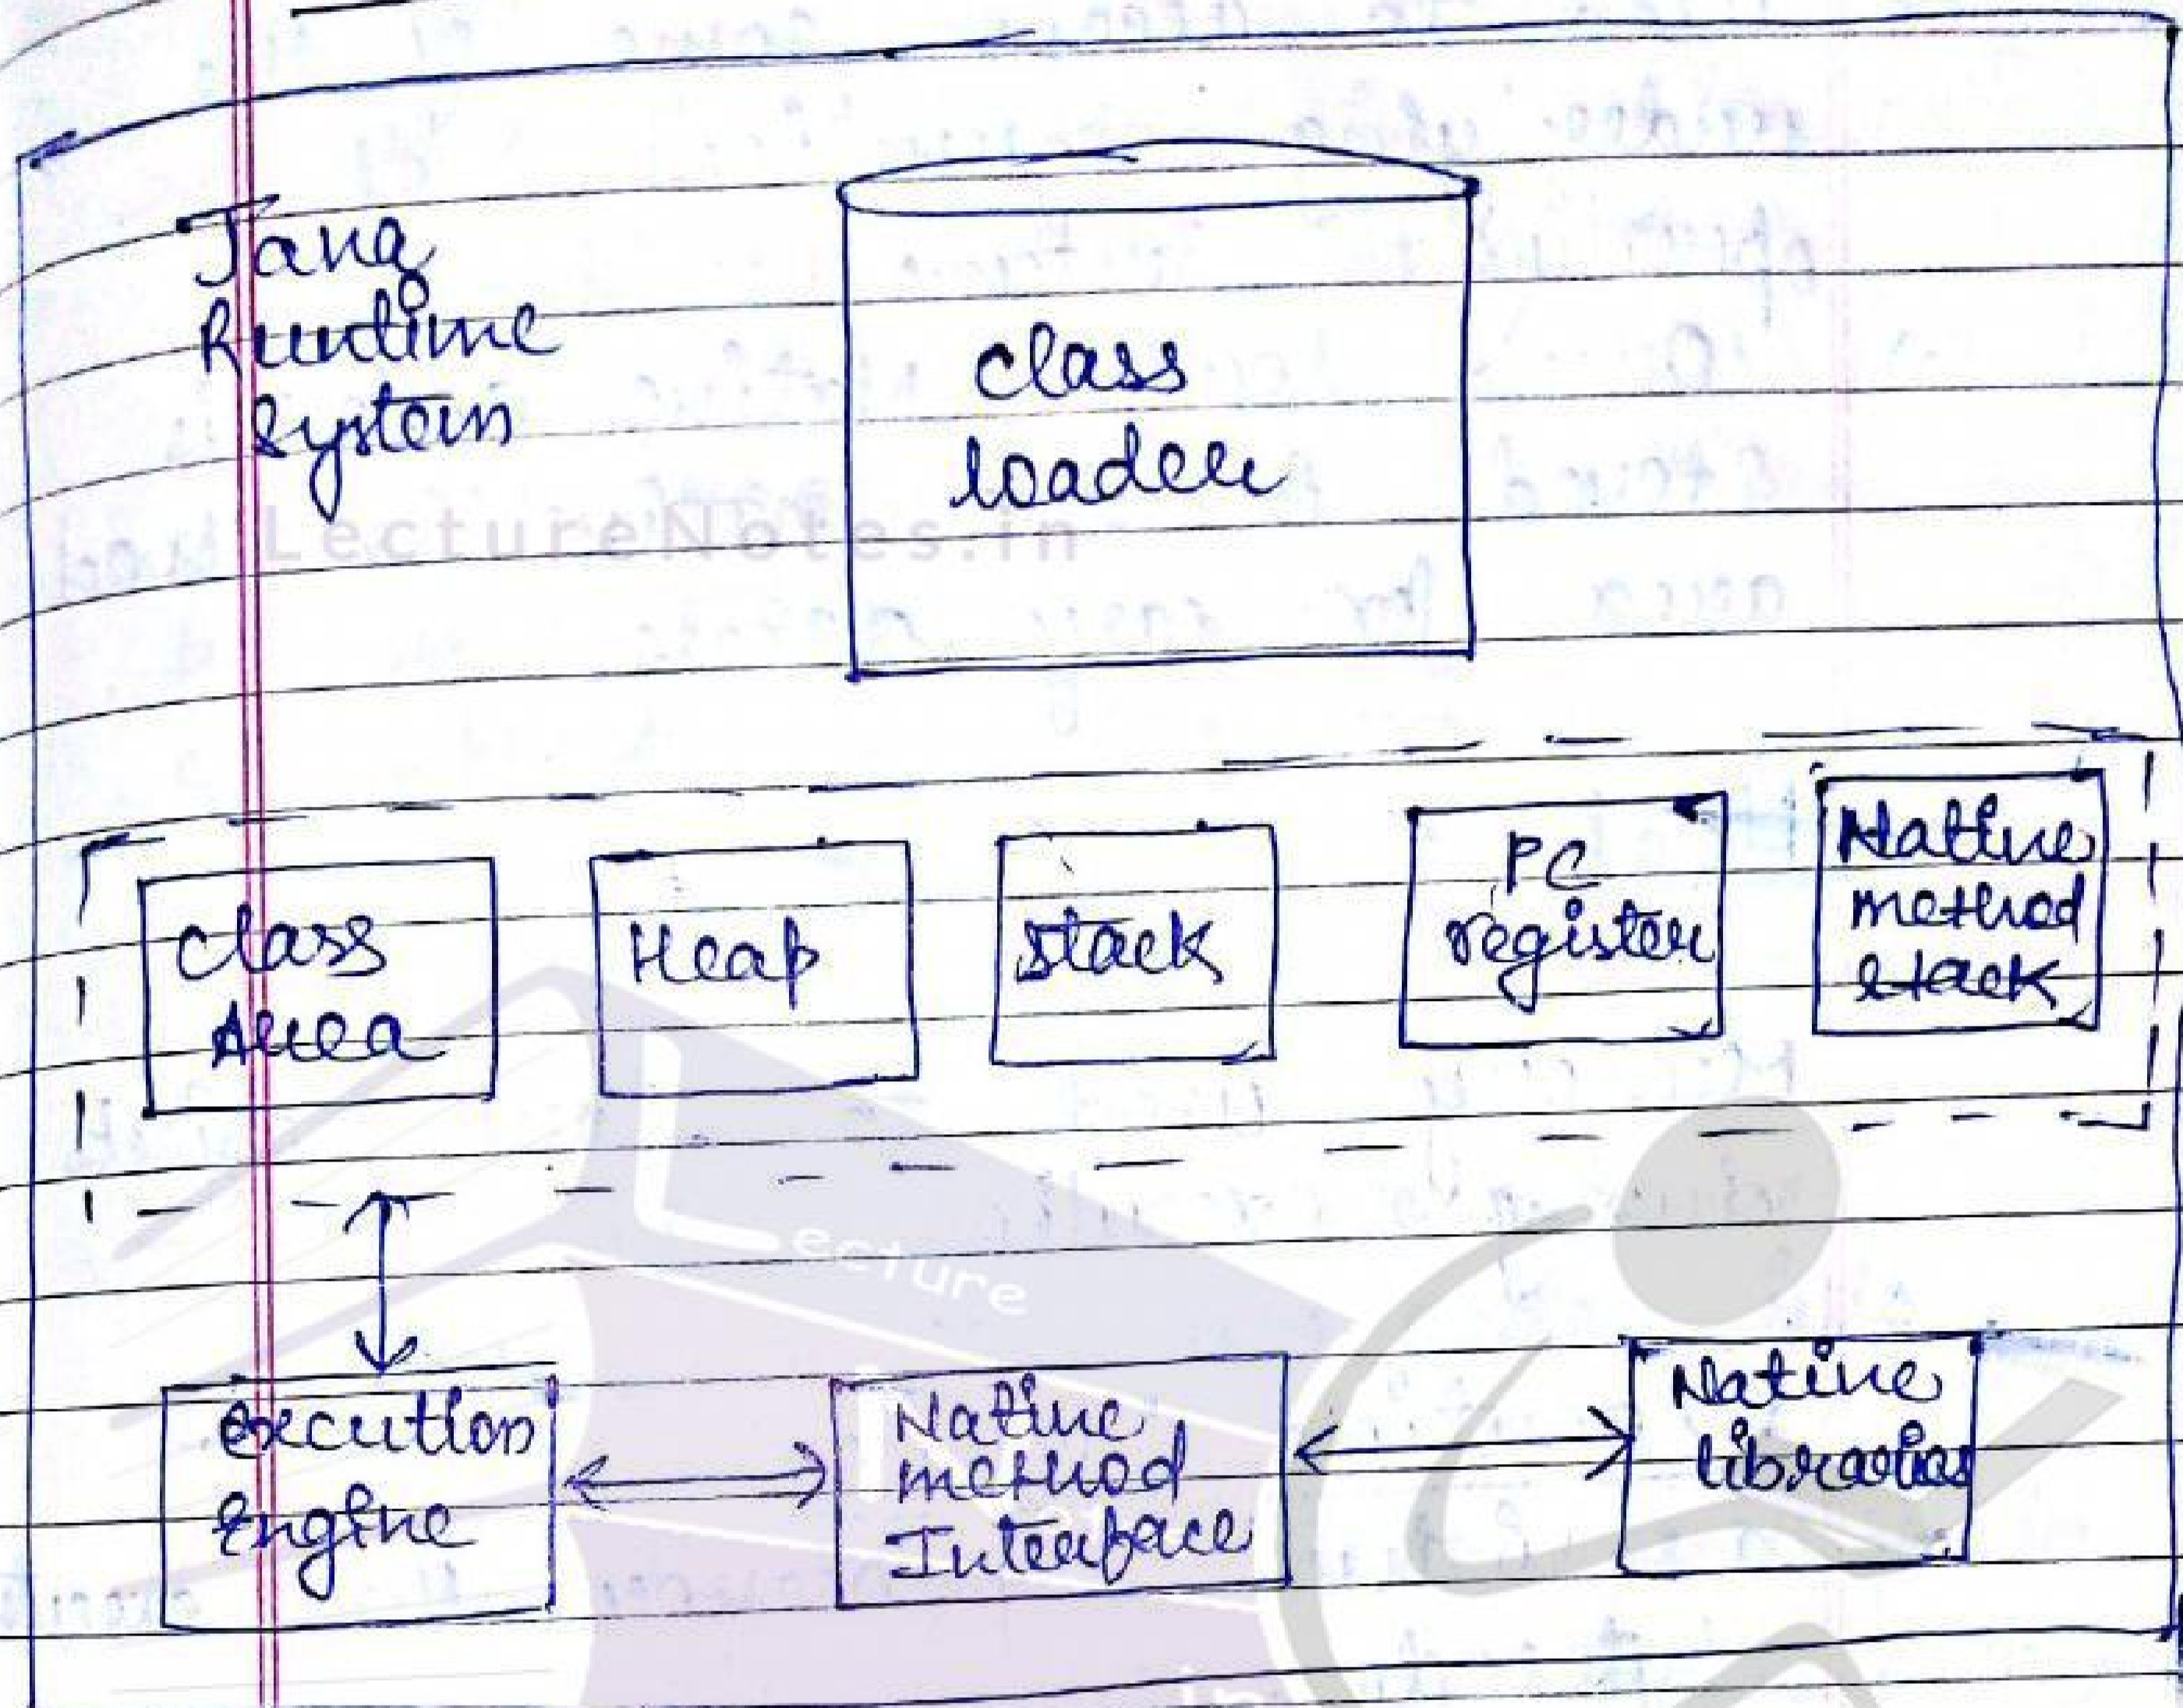 Java
Runtime
System
class
loader
LectureNotes.in
class
Area
Heap
Stack
PC
register
Native
method
stack
Lecture
execution
Engine
Native
method
Interface
Native
libraries
in